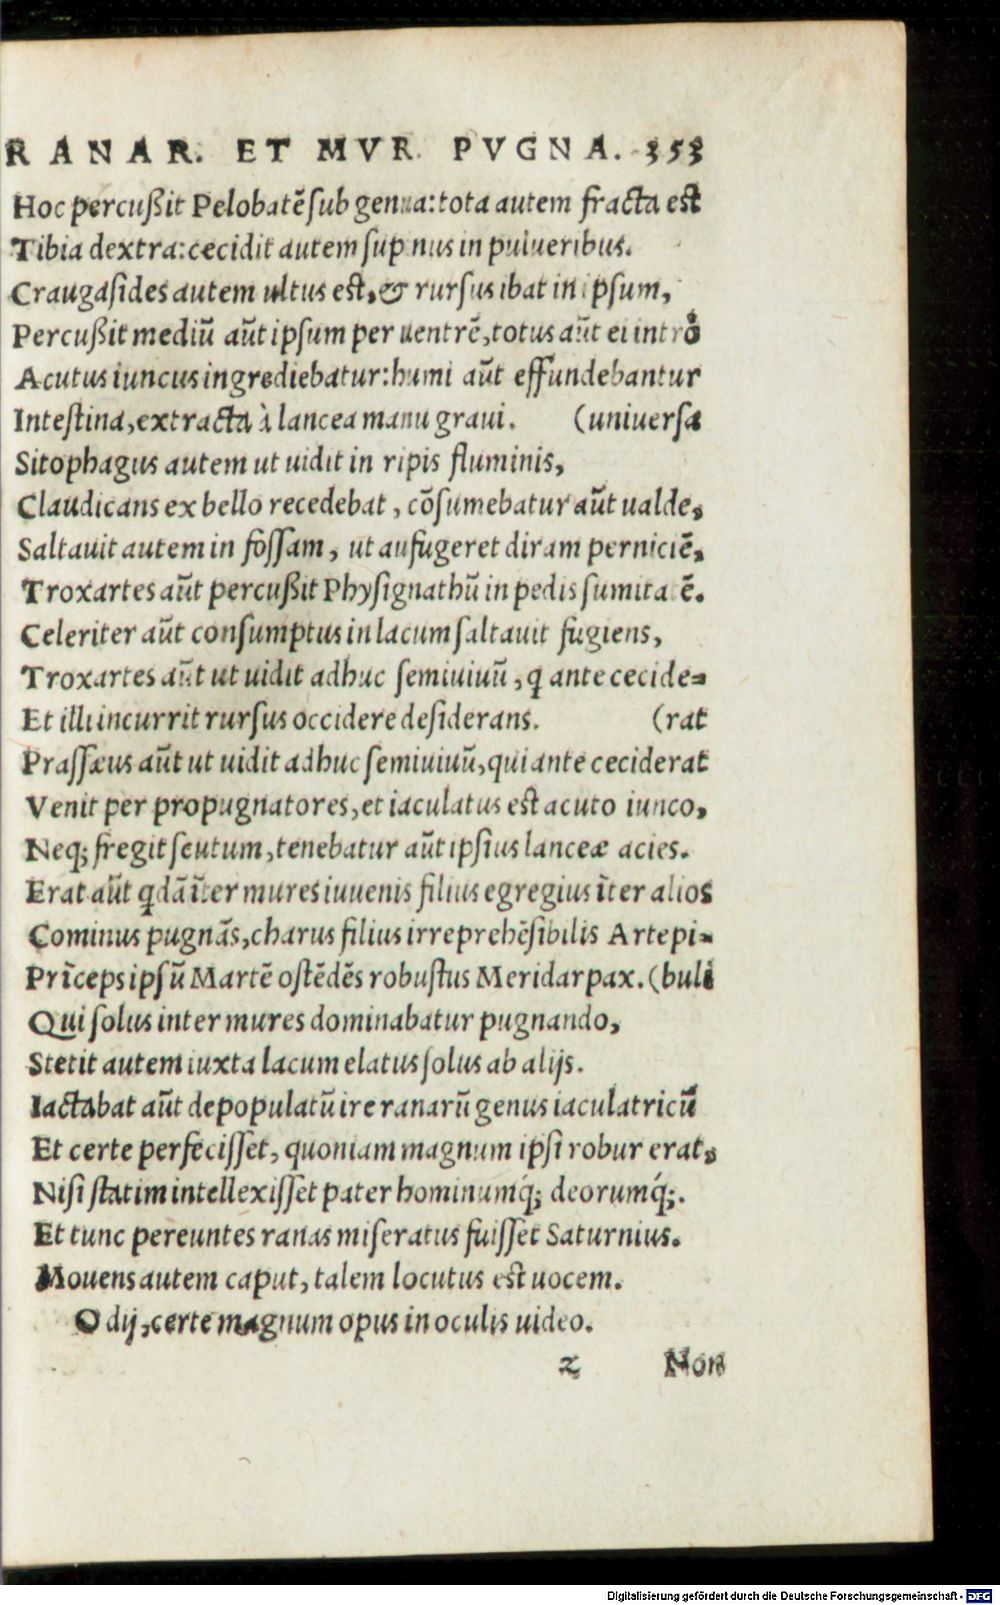 RANAR. ET MVR. PVGNA. 353
Hoc percußit Pelobatē ſub genua: tota autem fracta eſt
Tibia dextra: cecidit autem ſupinus in pulueribus.
Craugaſides autem ultus eſt, & rurſus ibat in ipſum,
Percußit mediū aūt ipſum per uentrē, totus aūt ei intrò
Acutus iuncus ingrediebatur: humi aūt effundebantur
Inteſtina, extracta à lancea manu graui. (uniuerſa
Sitophagus autem ut uidit in ripis fluminis,
Claudicans ex bello recedebat, cōſumebatur aūt ualde,
Saltauit autem in foſſam, ut aufugeret diram perniciē,
Troxartes aūt percußit Phyſignathū in pedis ſumitatē.
Celeriter aūt conſumptus in lacum ſaltauit fugiens,
Troxartes aūt ut uidit adhuc ſemiuiuū, q̄ ante cecide-
Et illi incurrit rurſus occidere deſiderans. (rat
Praſſæus aūt ut uidit adhuc ſemiuiuū, qui ante ceciderat
Venit per propugnatores, et iaculatus eſt acuto iunco,
Neq; fregit ſcutum, tenebatur aūt ipſius lanceæ acies.
Erat aūt qdā īter mures iuuenis filius egregius īter alios
Cominus pugnās, charus filius irreprehēſibilis Artepi-
Prīceps ipſū Martē oſtēdēs robuſtus Meridarpax. (buli
Qui ſolus inter mures dominabatur pugnando,
Stetit autem iuxta lacum elatus ſolus ab alijs.
Iactabat aūt depopulatū ire ranarū genus iaculatricū
Et certe perfeciſſet, quoniam magnum ipſi robur erat,
Niſi ſtatim intellexiſſet pater hominumq́; deorumq́;.
Et tunc pereuntes ranas miſeratus fuiſſet Saturnius.
Mouens autem caput, talem locutus eſt uocem.
O dij, certe magnum opus in oculis uideo.
z Non
Digitalisierung gefördert durch die Deutsche Forschungsgemeinschaft - DFG